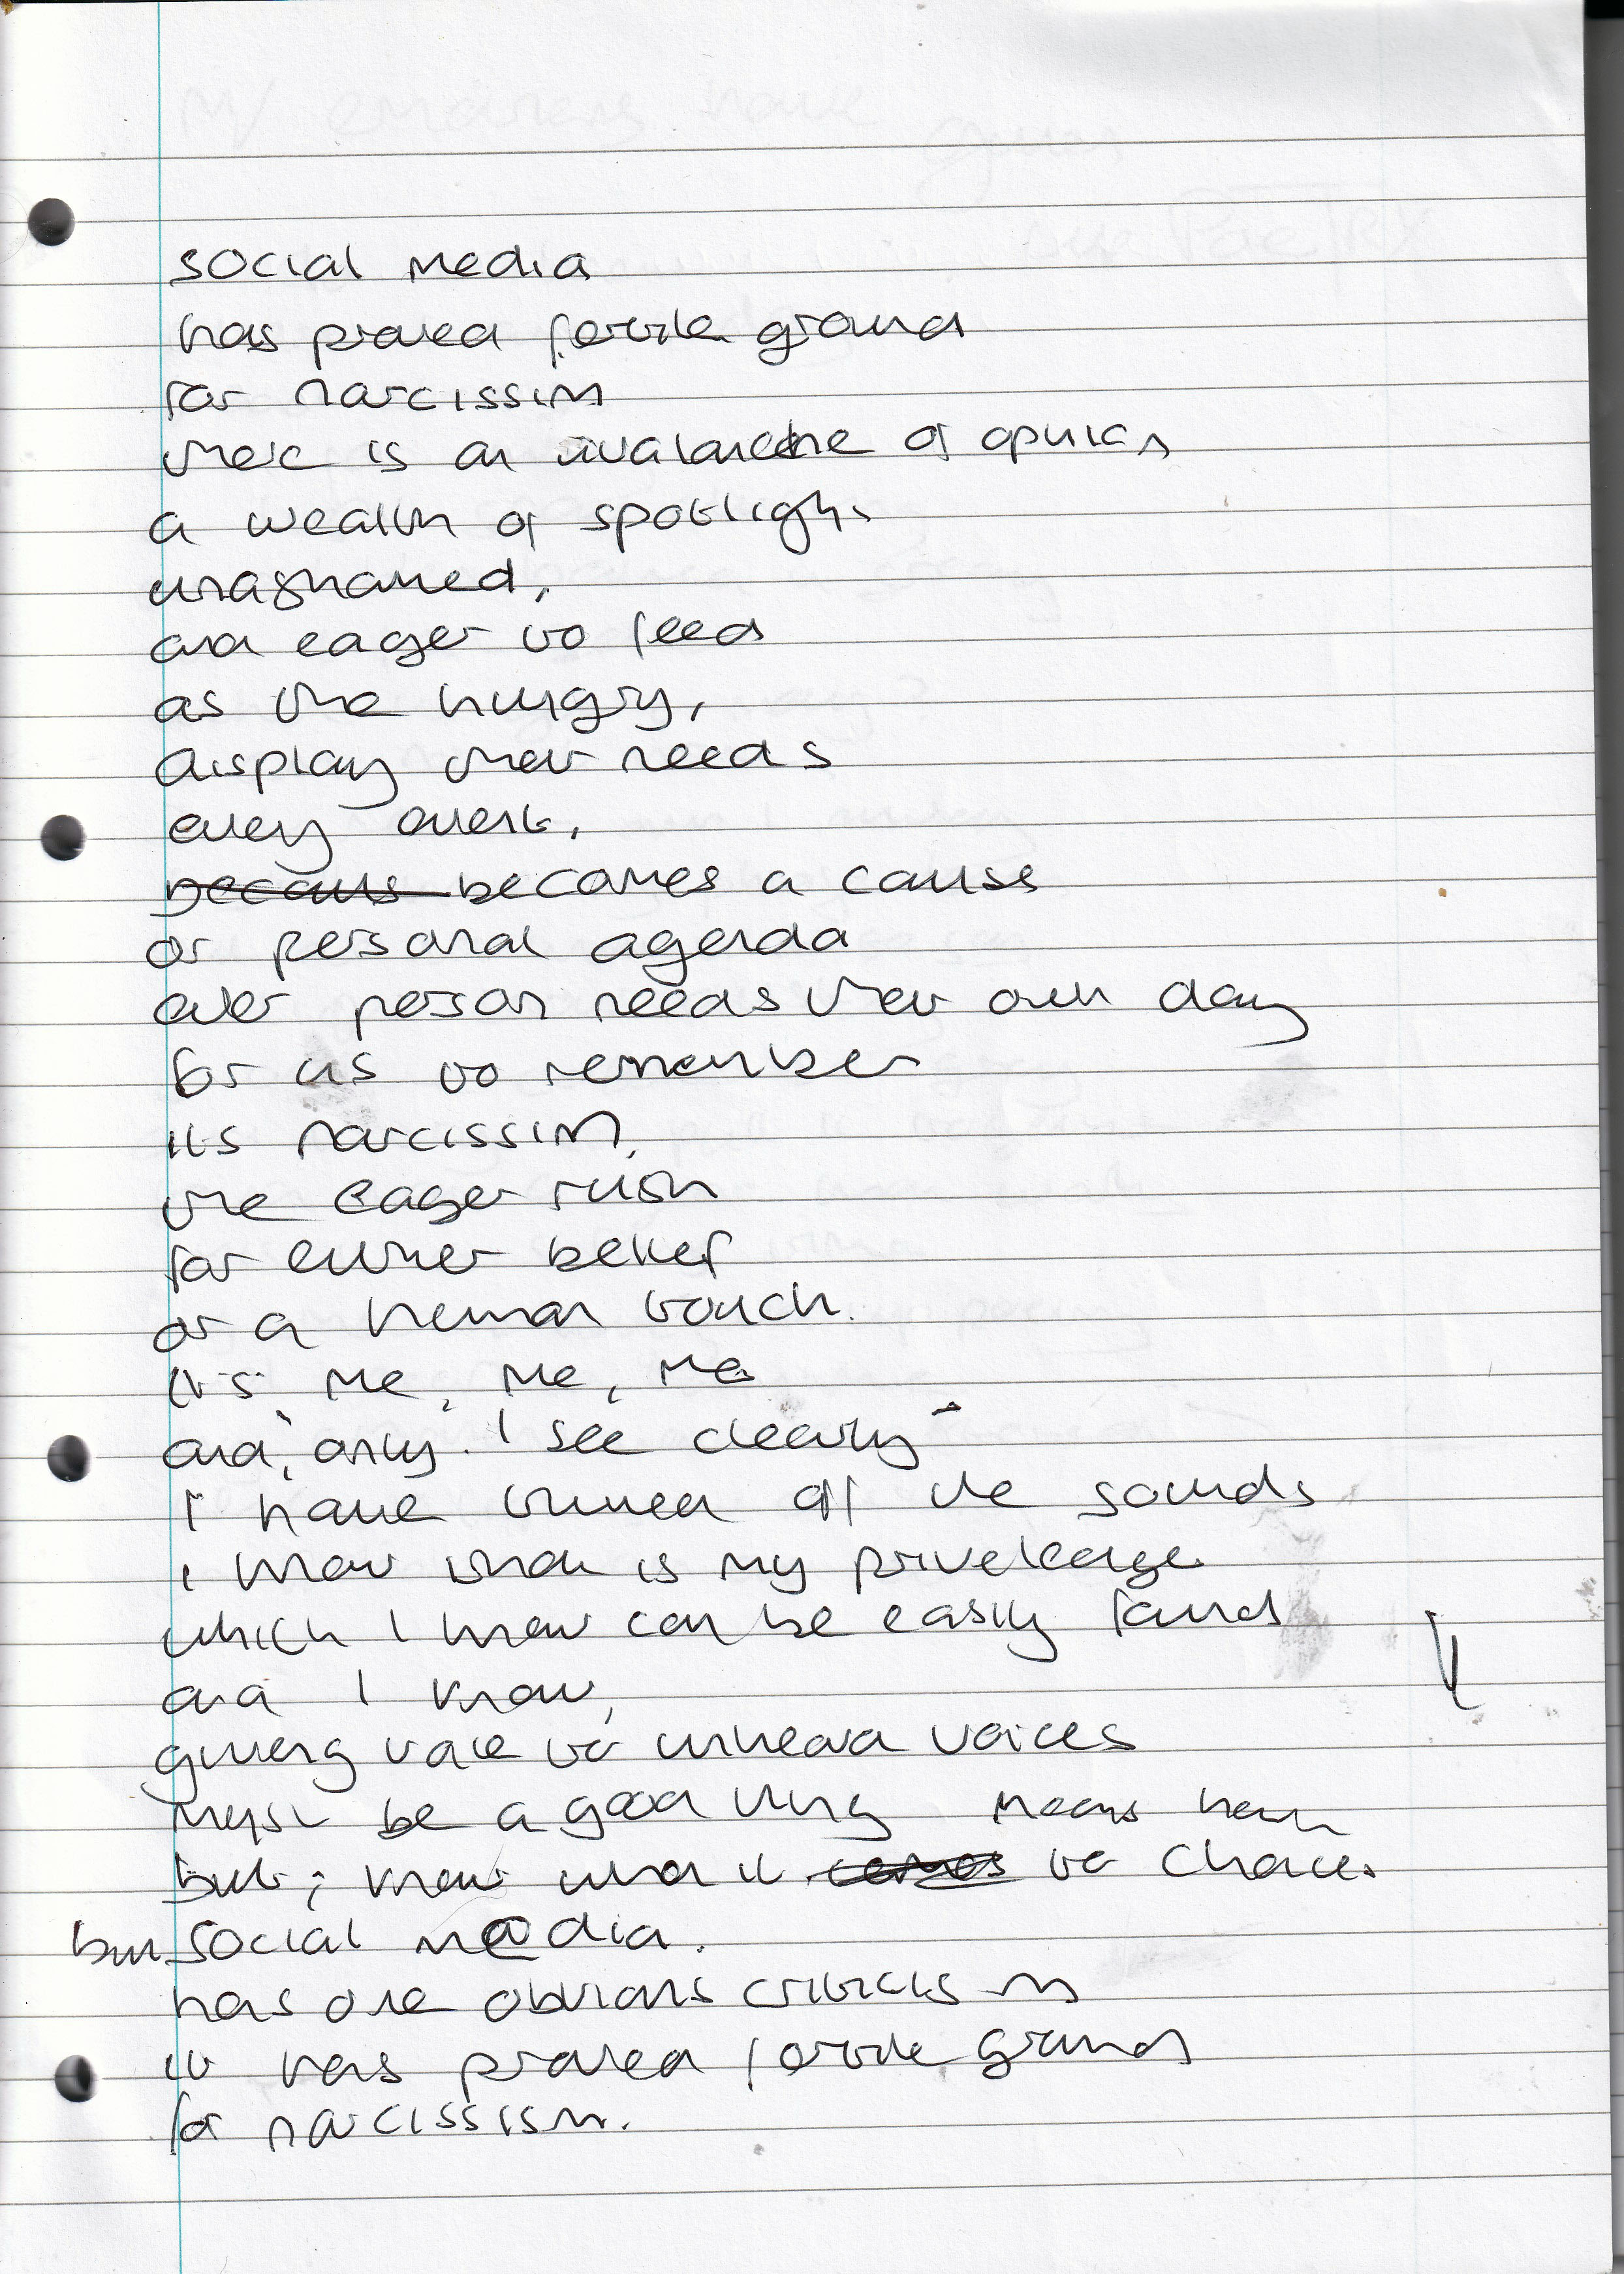 social media
has proved fertile ground
for narcissim
there is an avalanche of opinion
a wealth of spotlight
unashamed,
and eager to feed
as the hungry,
display their needs
every event,
becaus becomes a cause
or personal agenda
ever person needs their own day
for us to remember
its narcissim,
the eager rush
for either belief
or a human touch.
it's me, me, me
and, only. I see clearly
I have tuned off the sounds
i know that is my priveleage
which I know can be easily found
and I know,
giving voice to unheard voices
must be a good thing means here
but i know what it comes to choice
but social media.
has one obvious criticism
it has proved fertile ground
for narcissism.